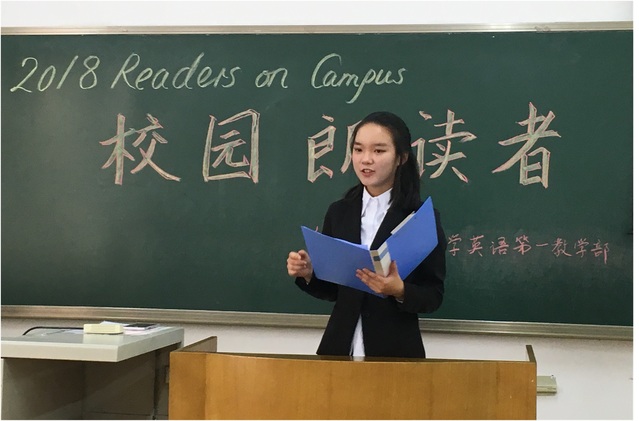 2018 Readers on Campus
校园朗读者
学英语第一教学部